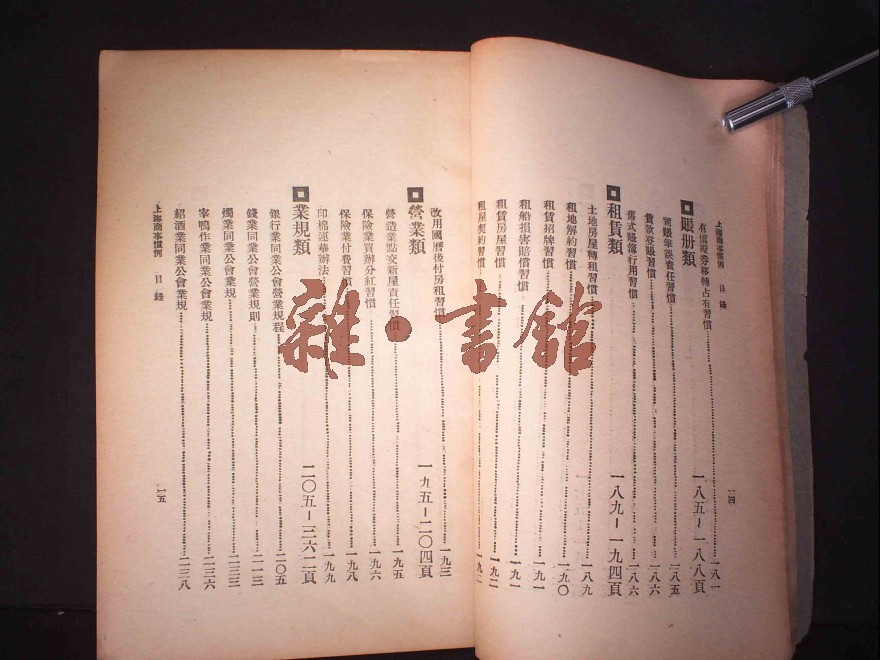 上海商事慣例　目錄　一四
有價證券移轉占有習慣……一八一
賬册類　一八五－一八八頁
司賬筆誤責任習慣……一八五
貨款登賬習慣……一八六
舊式賬簿行用習慣……一八六
租賃類　一八九－一九四頁
土地房屋轉租習慣……一八九
租地解約習慣……一九〇
租賃招牌習慣……一九一
租船損害賠償習慣……一九一
租賃房屋習慣……一九二
租屋契約習慣……一九二
改用國曆後付房租習慣……一九三
營業類　一九五－二〇四頁
營造業點交新屋責任習慣……一九五
保險業買辦分紅習慣……一九六
保險業付費習慣……一九八
印棉運華辦法……一九九
業規類　二〇五－三六二頁
銀行業同業公會營業規程……二〇五
錢業同業公會營業規則……二一三
燭業同業公會業規……二三三
宰鴨作業同業公會業規……二三六
紹酒業同業公會業規……二三八
上海商事慣例　目錄　一五
雜·書館